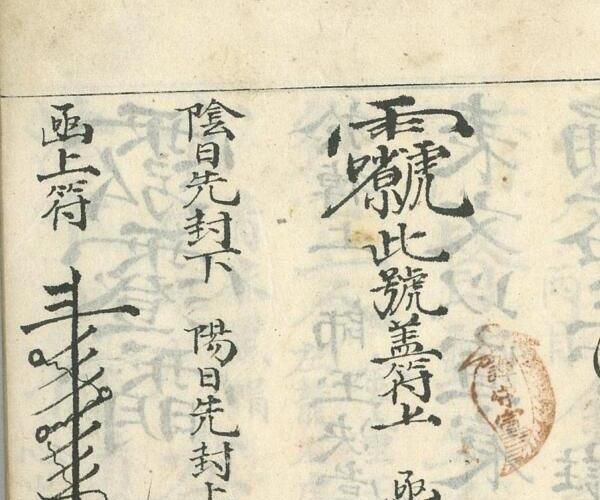 此號盖符上 函
陰日先封下 陽日先封上
函上符